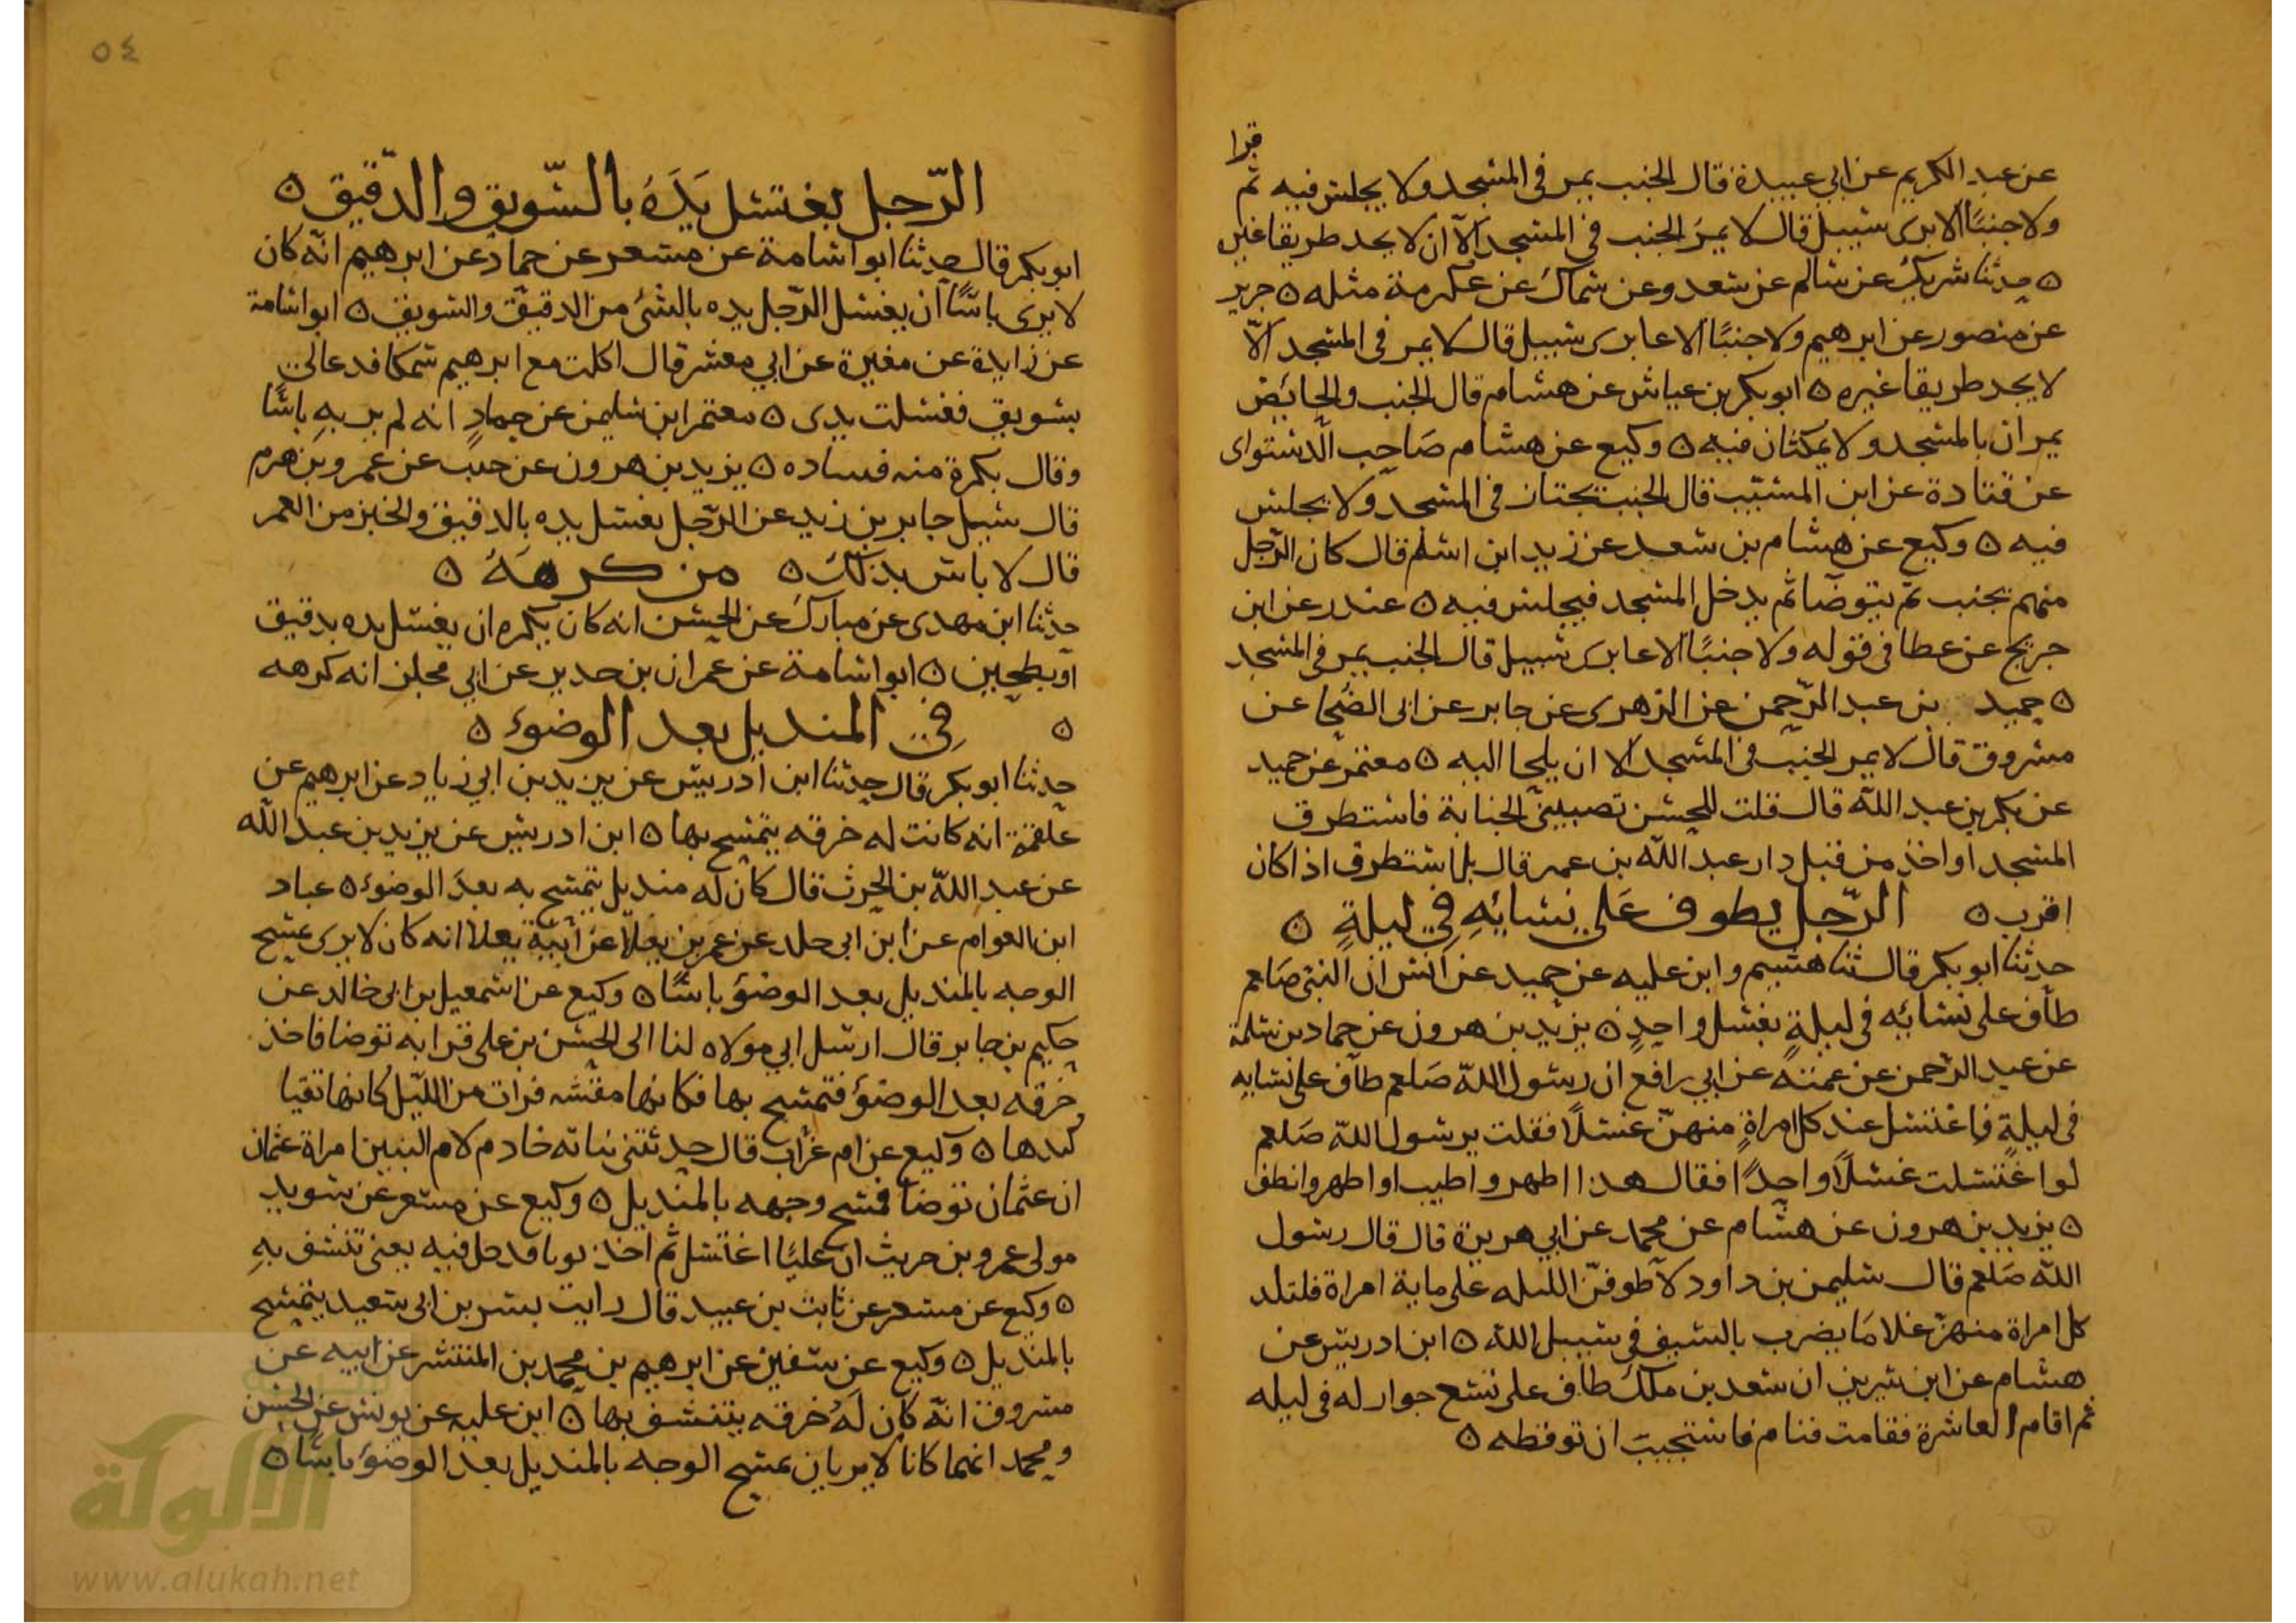 قرا
عن عبد الكريم عن ابي عبيدة قال الجنب يمر في المسجد ولا يجلس فيه ثم
ولا جنبًا الا برى سبيل قال لا يمر الجنب في المسجد الا ان لا يجد طريقا غيره
ه حدثنا شريك عن سالم عن سعد وعن سماك عن عكرمة مثله ه جرير
عن منصور عن ابرهيم ولا جنبًا الا عابرى سبيل قال لا يمر في المسجد الّا
لا يجد طريقا غيره ه ابو بكر بن عياش عن هشام قال الجنب والحائض
يمران بالمسجد ولا يمكثان فيه ه وكيع عن هشام صَاحِب الدستواى
عن قتادة عن ابن المسيّب قال الجنب يجتاز في المسجد ولا يجلس
فيه ه وكيع عن هشام بن سعد عن زيد ابن اسلم قال كان الرّجل
منهم يجنب ثم يتوضّا ثم يدخل المسجد فيجلس فيه ه غندر عن ابن
جريج عن عطا في قوله ولا جنبًا الا عابرى سبيل قال الجنب يمر في المسجد
ه حميد بن عبد الرّحمن عن الزهرى عن جابر عن ابى الضُّحا عن
مسروق قال لا يمر الجنب في المسجد الا ان يلجا اليه ه معتمر عن حميد
عن بكر بن عبد الله قال قلت للحسن تصيبني الجنابة فاستطرق
المسجد او اخذ من قبل دار عبد الله بن عمر قال بل استطرق اذا كان
اقرب ه الرّجل يطوف عَلى نِسَائِهِ فِي ليلةٍ ه
حدثنا ابو بكر قال ثنا هشيم وابن عليه عن حميد عن انس ان النبي صَلعم
طاف على نسائه في ليلةٍ بغسل واحدٍ ه يزيد بن هرون عن حماد بن سلمة
عن عبد الرحمن عن عمته عن ابي رافع ان رسول الله صَلعم طاف على نسايه
في ليلةٍ فاغتسل عند كل امراةٍ منهنّ غسلًا فقلت يرسول الله صَلعم
لو اغتسلت غسلًا واحدًا فقال هذا اطهر واطيب او اطهر وانظف
ه يزيد بن هرون عن هشام عن محمد عن ابي هريرة قال قال رسول
الله صَلعم قال سليمن بن داود لاطوفنّ الليله على ماية امراة فلتلد
كل امراة منهنّ غلامًا يضرب بالسيف في سبيل الله ه ابن ادريس عن
هشام عن ابن سيرين ان سعد بن ملك طاف على تسع جوار له في ليله
ثم اقام العاشرة فقامت فنام فاستحييت ان توقظه ه
٥٤
الرّجل يغتسل يَدَهُ بالسّويق والدّقيق ه
ابو بكر قال حدثنا ابو اسامة عن مسعر عن حماد عن ابرهيم انّه كان
لا يرى باسًا ان يغسل الرّجل يده بالشئ من الدقيق والسويق ه ابو اسامة
عن زايدة عن مغيرة عن ابي معشر قال اكلت مع ابرهيم سمكا فدعا لي
بسويق فغسلت يدى ه معتمر ابن سليمن عن حمادٍ انه لم ير بهِ باسًا
وقال يكره منه فساده ه يزيد بن هرون عن حبيب عن عمرو بن هرم
قال سيل جابر بن زيد عن الرّجل يغسل يده بالدقيق والخبز من الغمر
قال لا باس بذلك ه من كرهَهُ ه
حدثنا ابن مهدى عن مبارك عن الحسن انه كان يكره ان يغسل يده بدقيق
او بطحين ه ابو اسامة عن عمران بن حدير عن ابي مجلز انه كرهه
ه فِي المنديل بعد الوضوء ه
حدثنا ابو بكر قال حدثنا ابن ادريس عن يزيد بن ابي زياد عن ابرهيم عن
علقمة انه كانت له خرقه يتمسح بها ه ابن ادريس عن يزيد بن عبد الله
عن عبد الله بن الحرث قال كان له منديل يتمسح به بعد الوضوء ه عباد
ابن العوام عن ابن ابى خلد عن عمر بن يعلا عن ابيه يعلا انه كان لا يرى بمسح
الوجه بالمنديل بعد الوضؤ باسًا ه وكيع عن اسمعيل بن ابي خالد عن
حكيم بن جابر قال ارسل ابي مولاه لنا الى الحسن بن على فراته توضا فاخذ
خرقه بعد الوضؤ فتمسح بها فكانها مقتته فرات من الليل كانها تقيا
كبدها ه وكيع عن ام غراب قال حدثتني نباته خادم لام البنين امراة عثمان
ان عثمان توضا فمسح وجهه بالمنديل ه وكيع عن مسعر عن سويد
مولى عمرو بن حريث ان عليًا اغتسل ثم اخذ ثوبا فدخل فيه يعنى تنشف بهِ
ه وكيع عن مسعر عن ثابت بن عبيد قال رايت بسر بن ابي سعيد يتمسح
بالمنديل ه وكيع عن سفين عن ابرهيم بن محمد بن المنتشر عن ابيه عن
مسروق انّه كان لَهُ خرقه يتنشف بها ه ابن عليه عن يونس عن الحسن
ومحمد انهما كانا لا يريان بمسح الوجه بالمنديل بعد الوضوء باسًا ه
الألوكة
www.alukah.net